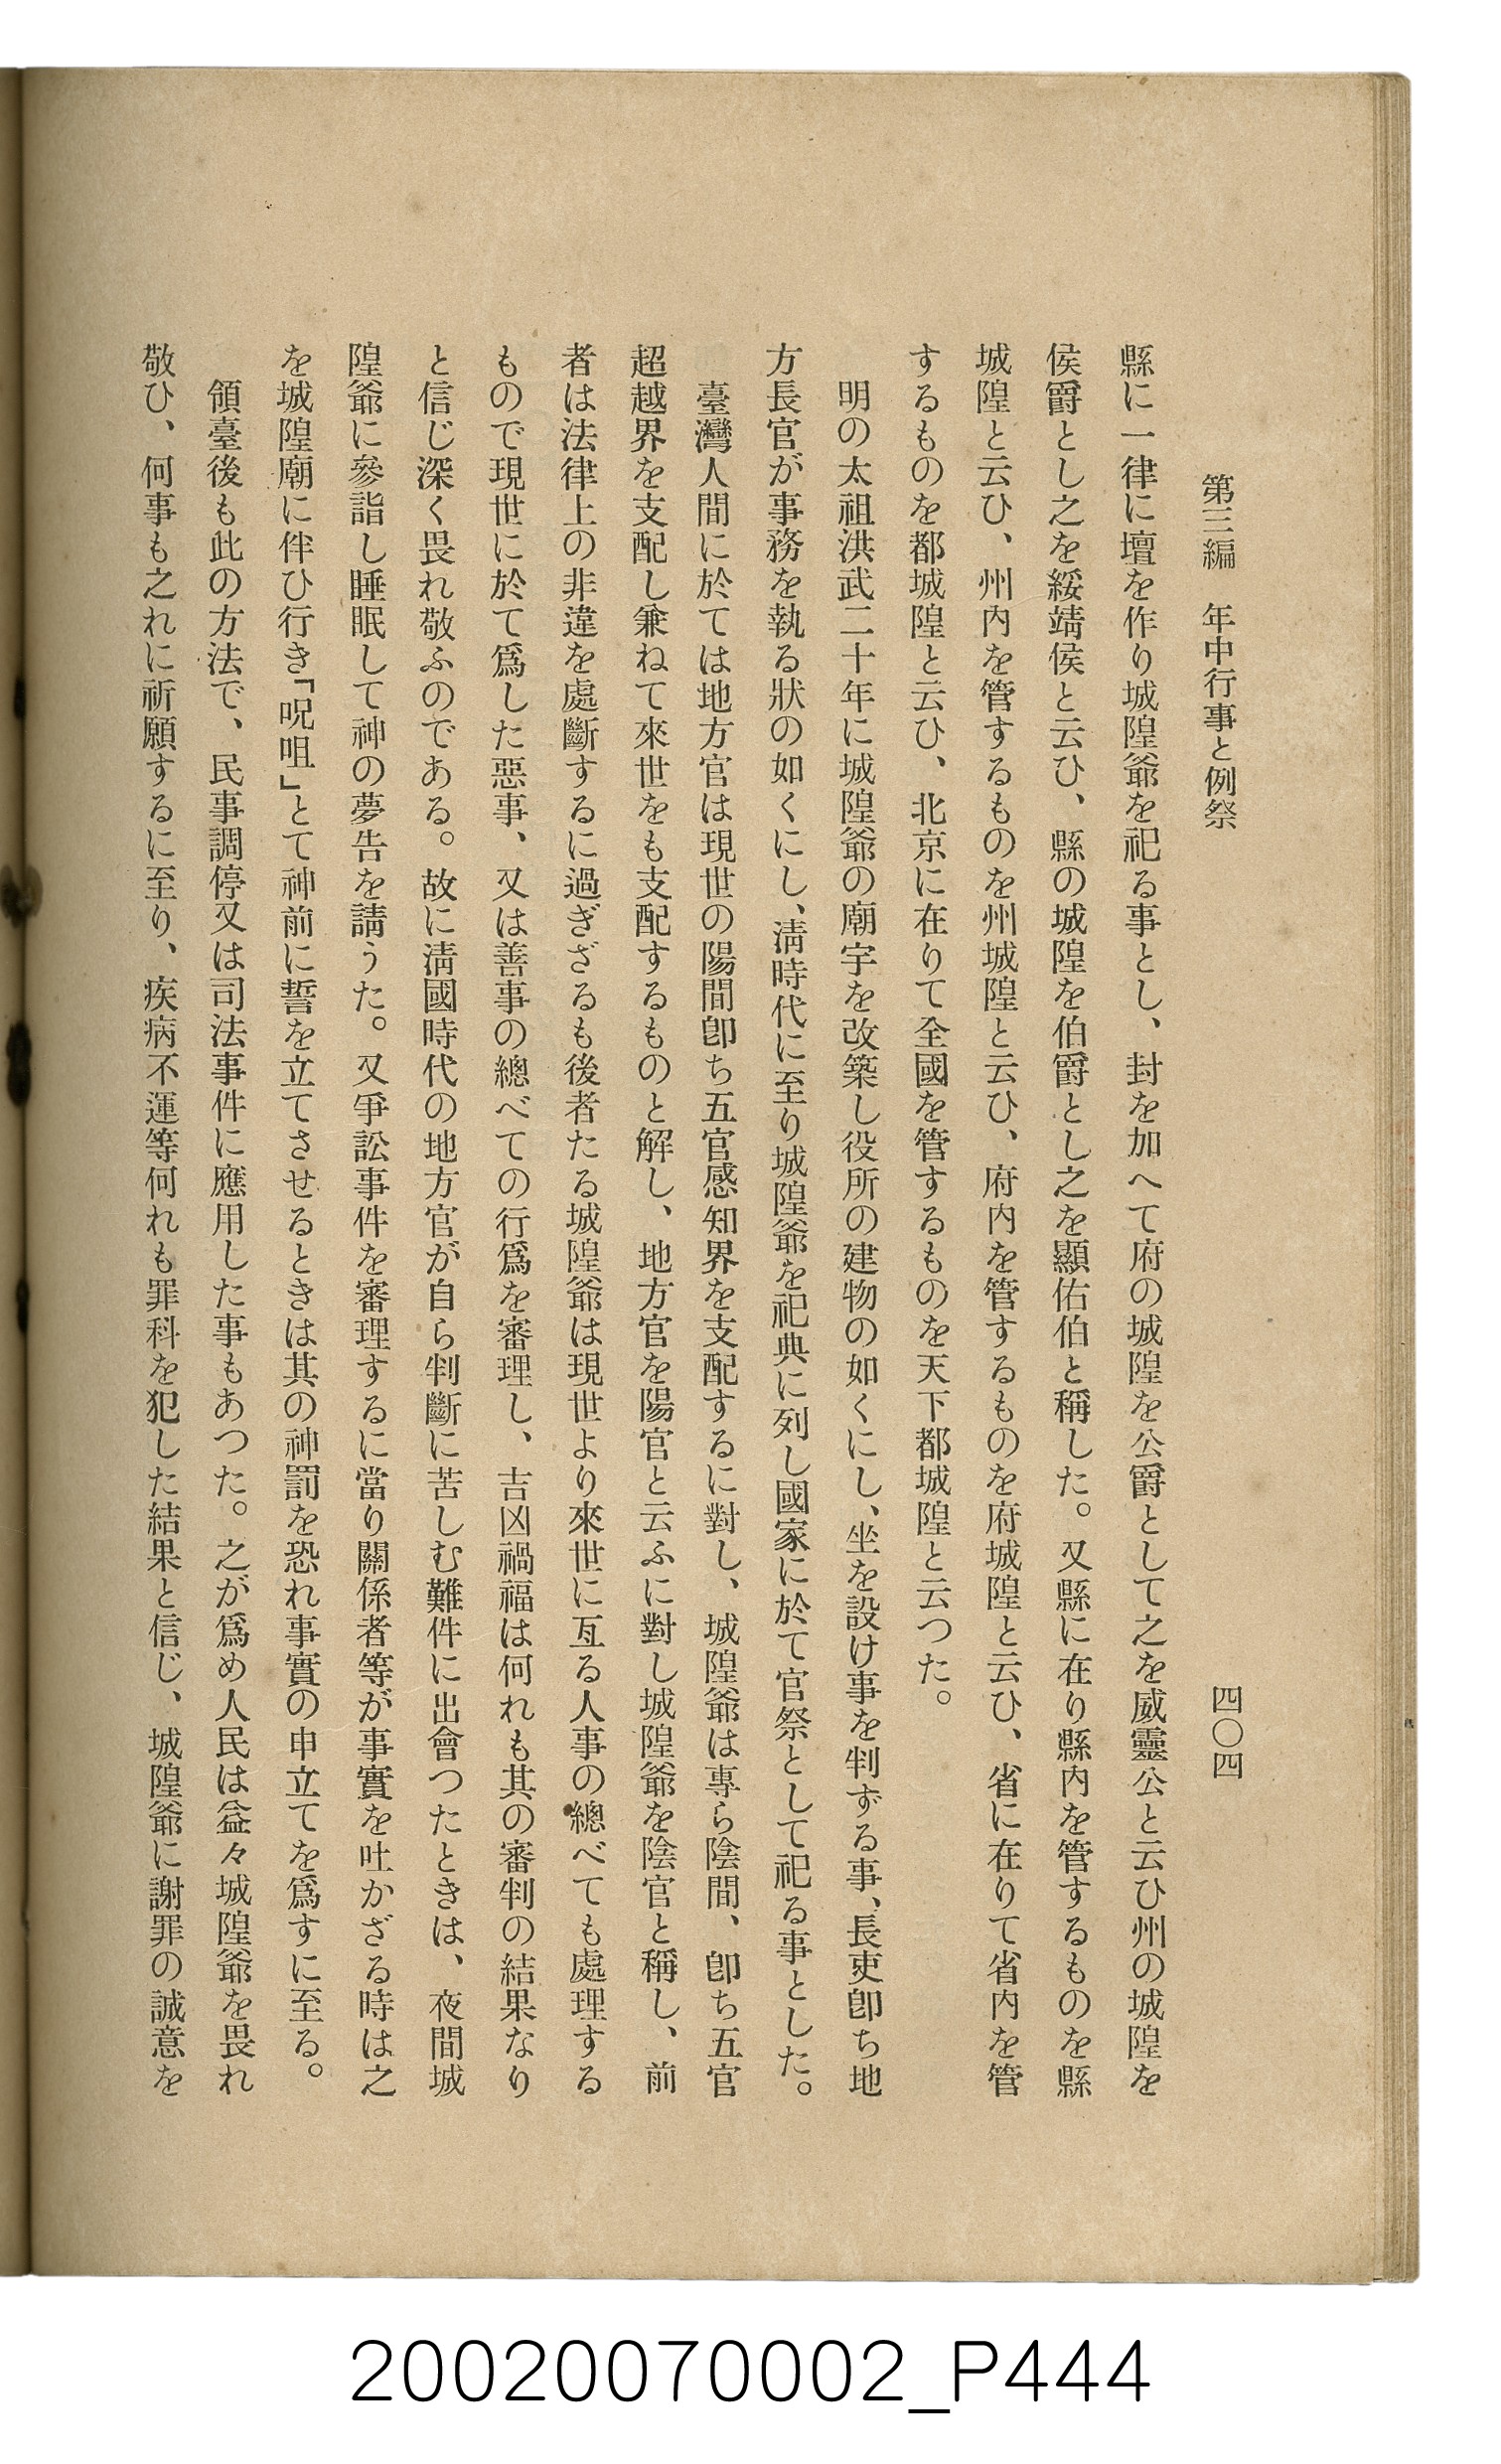 第三編　年中行事と例祭
四〇四
縣に一律に壇を作り城隍爺を祀る事とし、封を加へて府の城隍を公爵として之を威靈公と云ひ州の城隍を
侯爵とし之を綏靖侯と云ひ、縣の城隍を伯爵とし之を顯佑伯と稱した。又縣に在り縣内を管するものを縣
城隍と云ひ、州内を管するものを州城隍と云ひ、府内を管するものを府城隍と云ひ、省に在りて省内を管
するものを都城隍と云ひ、北京に在りて全國を管するものを天下都城隍と云つた。
　明の太祖洪武二十年に城隍爺の廟宇を改築し役所の建物の如くにし、坐を設け事を判ずる事、長吏卽ち地
方長官が事務を執る狀の如くにし、淸時代に至り城隍爺を祀典に列し國家に於て官祭として祀る事とした。
　臺灣人間に於ては地方官は現世の陽間卽ち五官感知界を支配するに對し、城隍爺は專ら陰間、卽ち五官
超越界を支配し兼ねて來世をも支配するものと解し、地方官を陽官と云ふに對し城隍爺を陰官と稱し、前
者は法律上の非違を處斷するに過ぎざるも後者たる城隍爺は現世より來世に亙る人事の總べても處理する
もので現世に於て爲した惡事、又は善事の總べての行爲を審理し、吉凶禍福は何れも其の審判の結果なり
と信じ深く畏れ敬ふのである。故に淸國時代の地方官が自ら判斷に苦しむ難件に出會つたときは、夜間城
隍爺に參詣し睡眠して神の夢告を請うた。又爭訟事件を審理するに當り關係者等が事實を吐かざる時は之
を城隍廟に伴ひ行き「呪咀」とて神前に誓を立てさせるときは其の神罰を恐れ事實の申立てを爲すに至る。
　領臺後も此の方法で、民事調停又は司法事件に應用した事もあつた。之が爲め人民は益々城隍爺を畏れ
敬ひ、何事も之れに祈願するに至り、疾病不運等何れも罪科を犯した結果と信じ、城隍爺に謝罪の誠意を
20020070002_P444